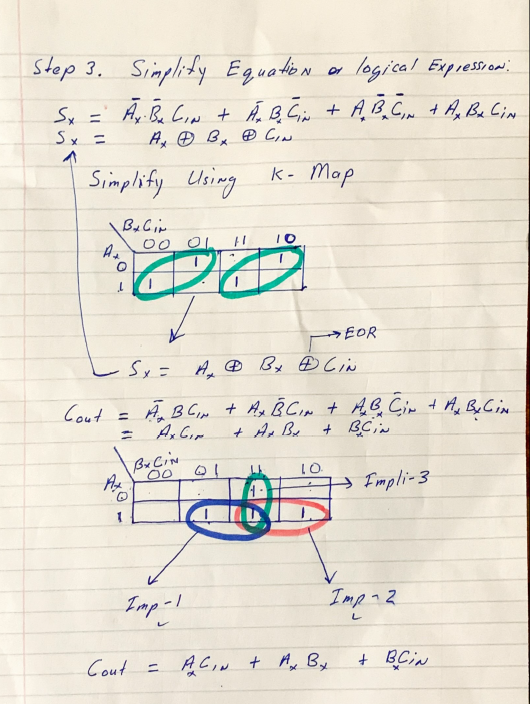 Step 3. Simplify Equation or logical Expression:
Sₓ = A̅ₓ.B̅ₓ Cɪɴ + A̅ₓ BₓC̅ɪɴ + AₓB̅ₓC̅ɪɴ + Aₓ Bₓ Cin
Sₓ = Aₓ ⊕ Bₓ ⊕ Cɪɴ
Simplify Using K-Map
BₓCin
00 01 11 10
Aₓ
0 1 1
1 1 1
EOR
Sₓ = Aₓ ⊕ Bₓ ⊕ Cin
Cout = A̅ₓ B Cɪɴ + Aₓ B̅ Cɪɴ + AₓBₓ C̅in + Aₓ BₓCin
= AₓCɪɴ + AₓBₓ + BCin
BₓCin
00 01 11 10
Aₓ
0 1 Impli-3
1 1 1 1
Imp-1 Imp-2
Cout = AₓCɪɴ + AₓBₓ + BₓCin